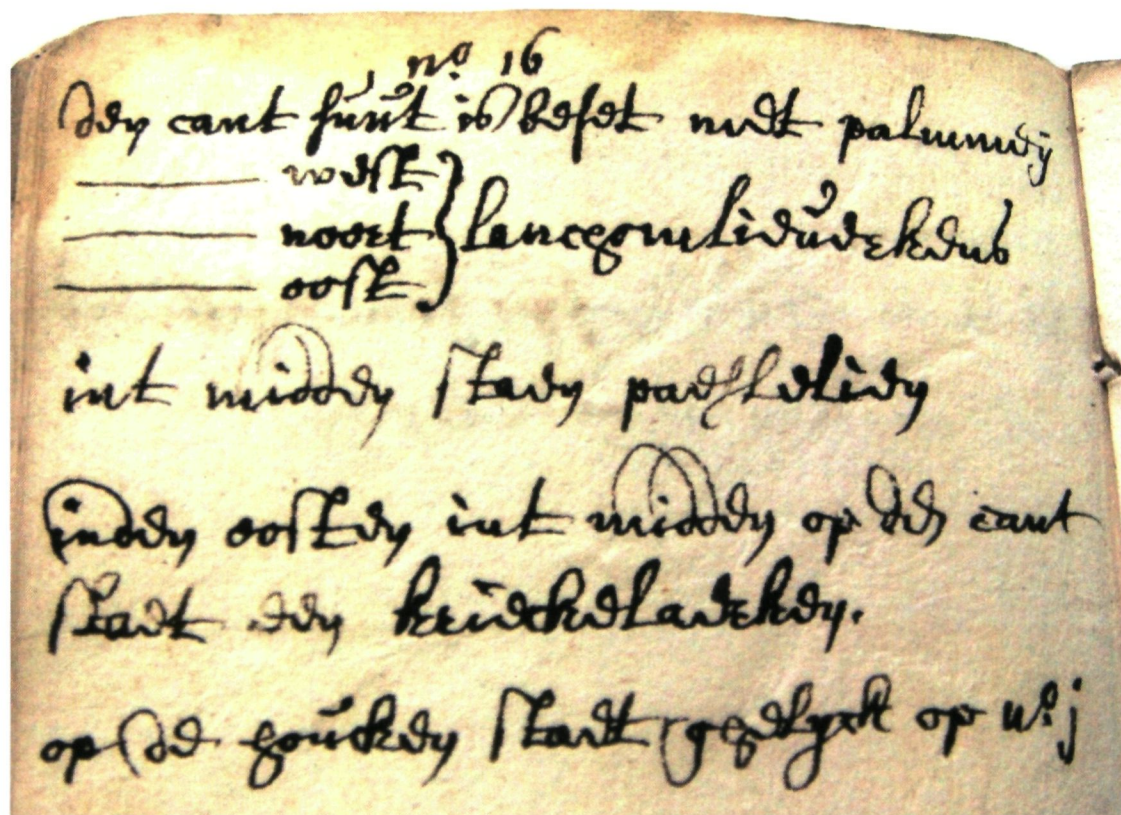 no. 16
den cant suut is beset met palmmeij
——— west
——— noort } lancgomlieuuerkens
——— oost
int midden staen paessellelien
inden oosten int midden op den cant
staet een krieckelaerken.
op de houcken staet ghelyck op no. j